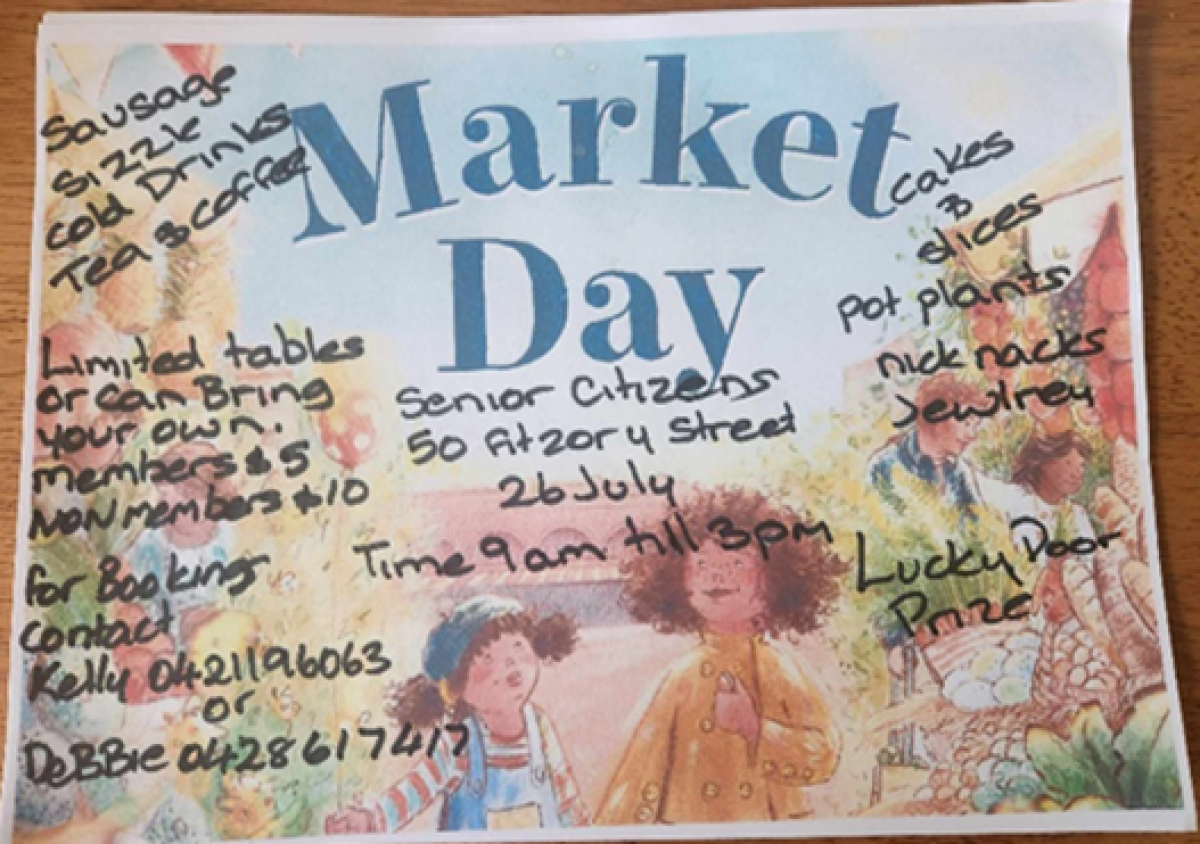 Market
Day
Sausage
Sizzle
cold Drinks
Tea & coffee
Limited tables
or can Bring
your own.
members $5
NON members $10
for Booking
contact
Kelly 0421196063
or
DeBBie 0428617417
Senior Citizens
50 fitzory Street
26 July
Time 9am till 3pm
Cakes
&
slices
Pot plants
nick nacks
Jewlrey
Lucky Door
Prize